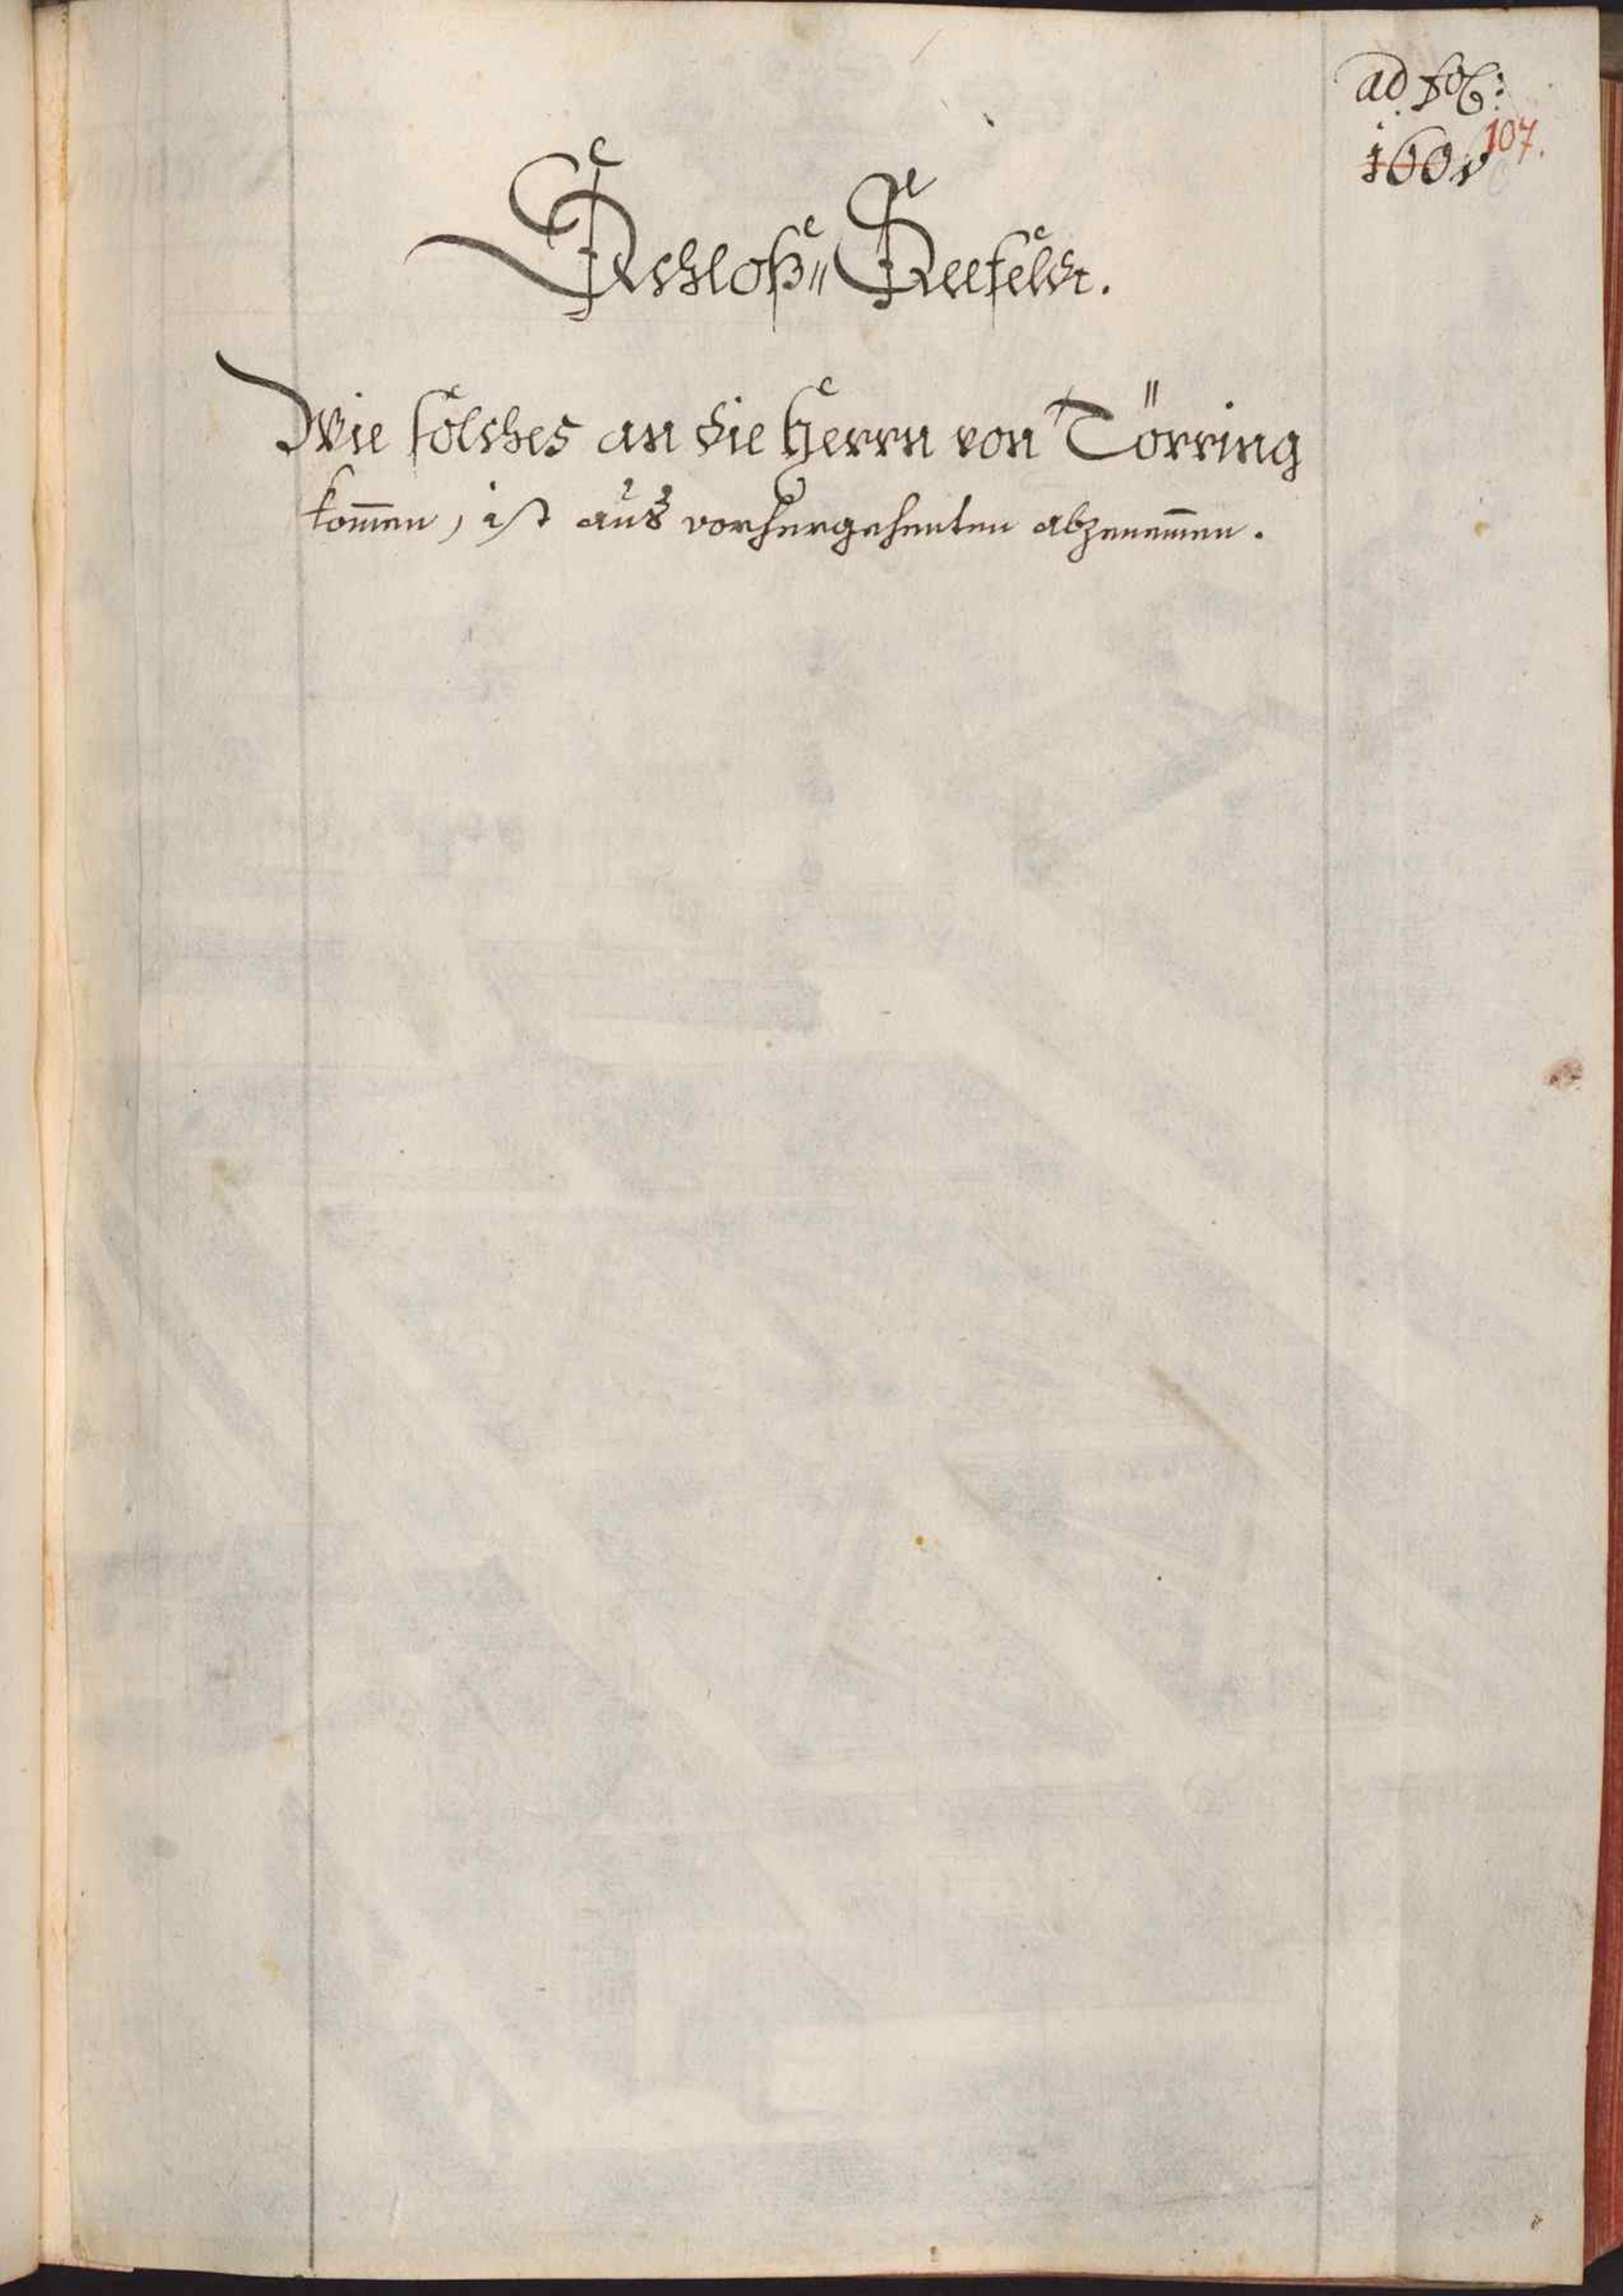 ad fol:
107.
Schloß Seefeldt.
Wie solches an die Herrn von Törring
kom̄en, ist auß vorhergehenten abzenem̄en.